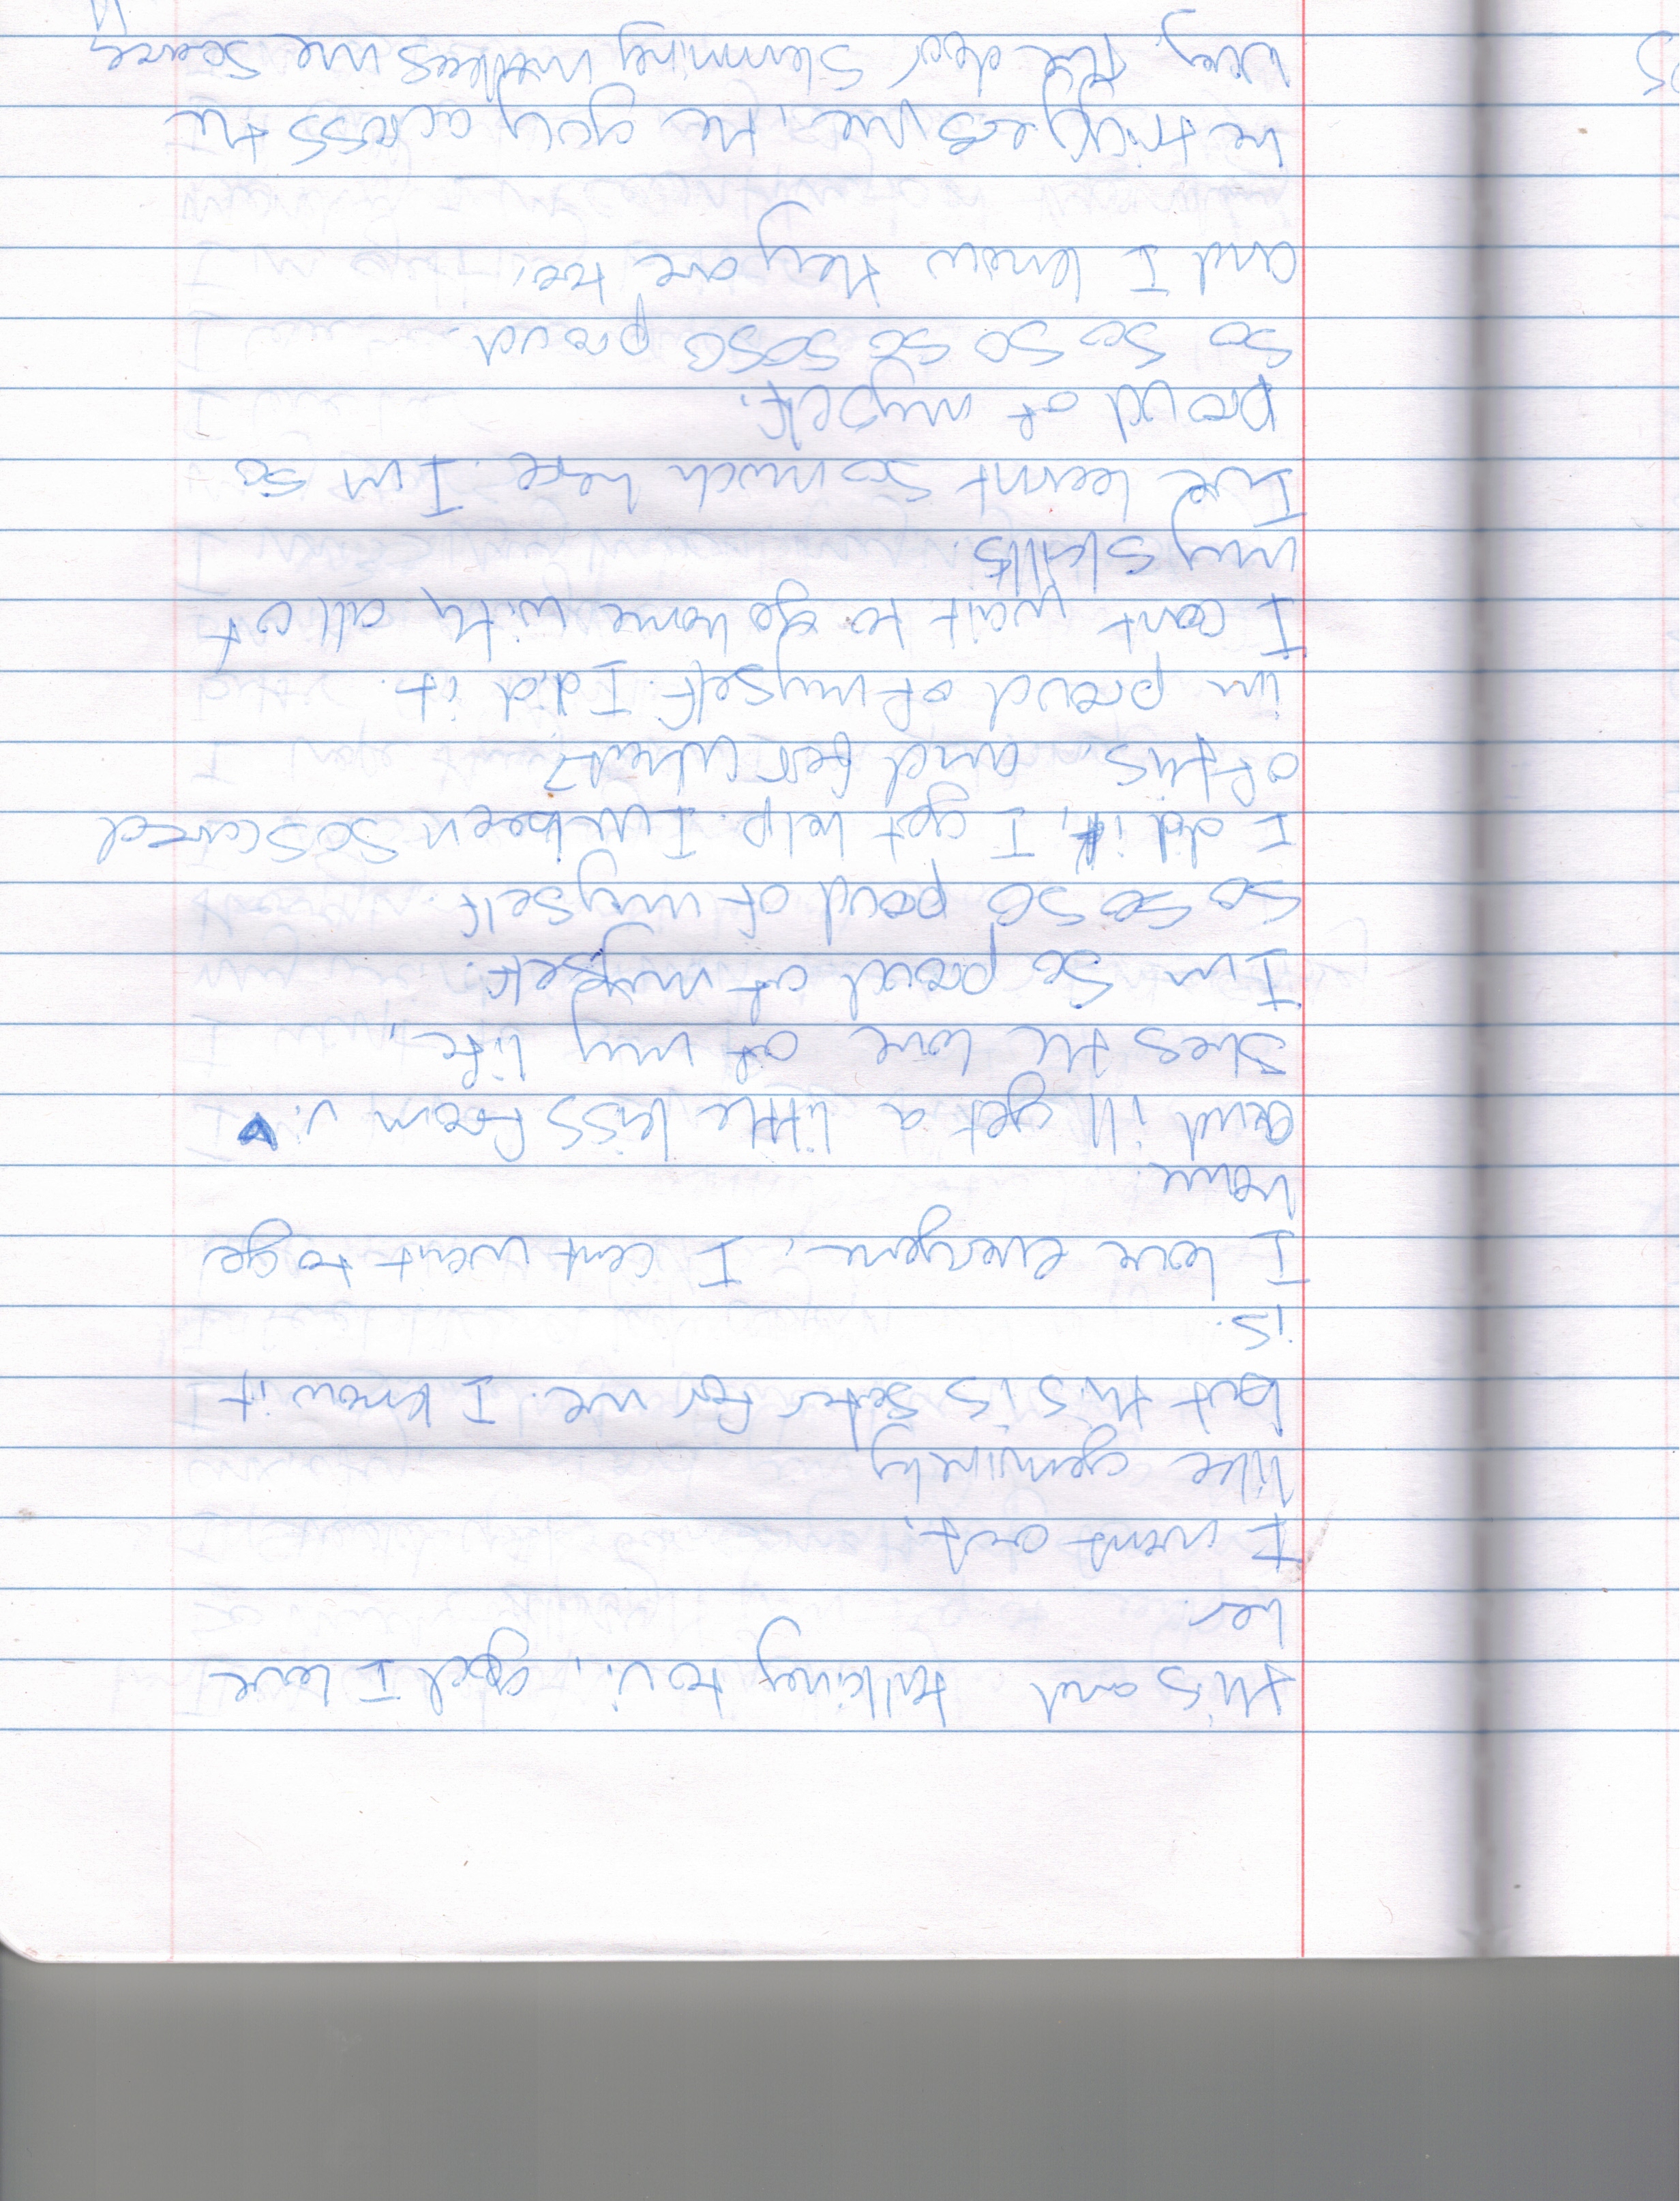 this and talking to v., god I love
her.
I want out,
like genuinely
but this is safer for me. I know it
is.
I love everyone, I cant want to go
home.
and ill get a little kiss from v.
Shes the love of my life,
I'm so proud of myself.
So so so proud of myself.
I did it, I got help. I've been so scared
of this, and for what?
im proud of myself. I did it.
I cant wait to go home with all of
my skills.
I've learnt so much here. I'm so
proud of myself.
so so so so soso proud.
and I know they are too.
he triggers me, the guy across the
way, the door slamming makes me scared